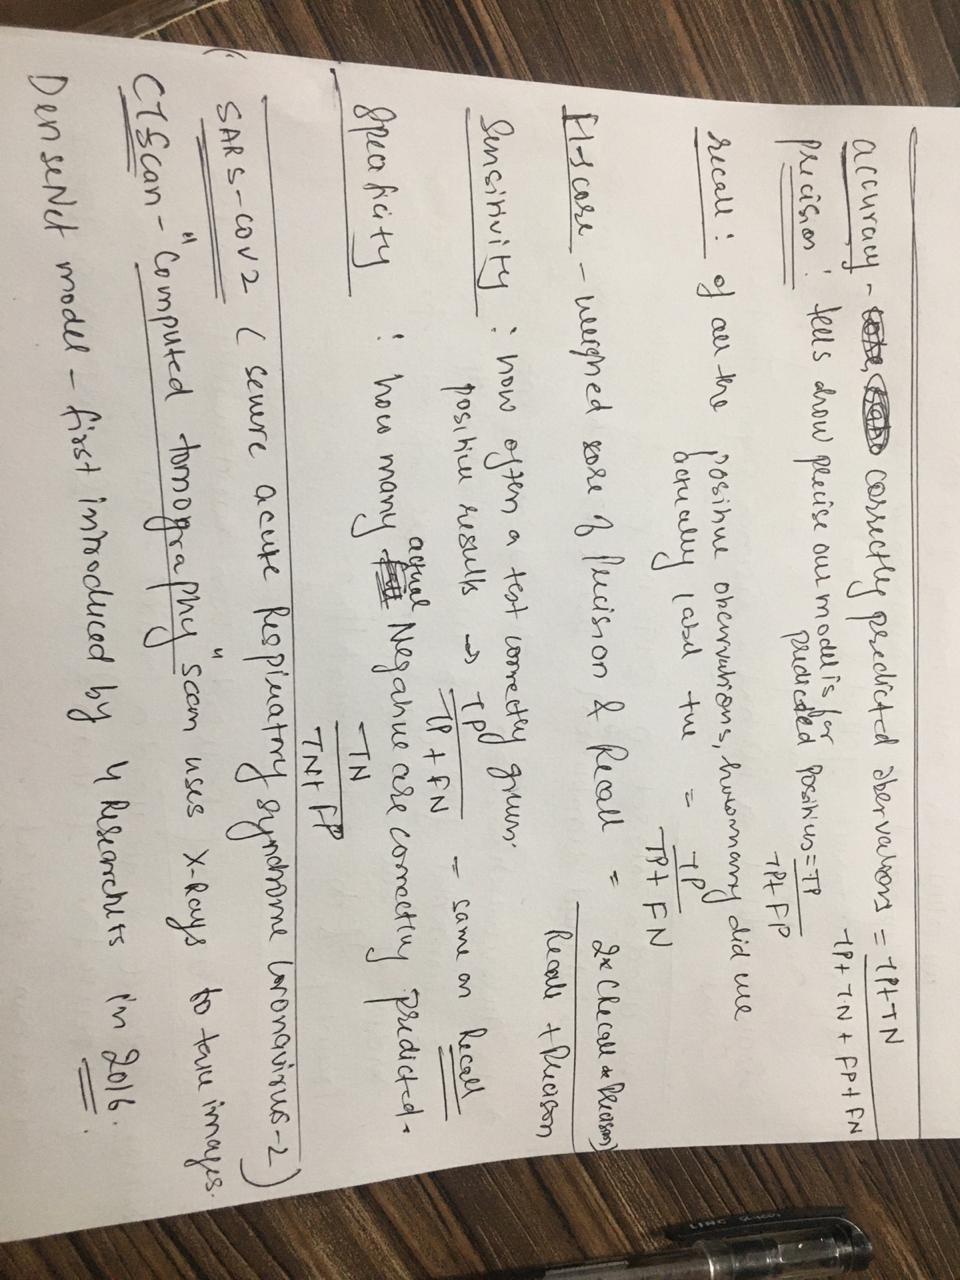 accuracy - correctly predicted obervations = TP+TN
TP+ TN + FP+ FN
precision : tells show precise our model is for
predicted Positives = TP
TP+ FP
recall : of all the positive obervations, how many did we
actually label true = TP
TP+ FN
F1-score - weighed score of Precision & Recall = 2x (Recall * Precison)
Recall + Precison
Sensitivity : how often a test correctly gives
positive results → TP
TP + FN
- same as Recall
Specificity : how many actual Negative are correctly predicted.
TN
TN+ FP
SARS-COV2 (severe acute Respiratory syndrome Coronavirus-2)
CT Scan - "Computed tomography" scan uses X-Rays to take images.
DenseNet model - first introduced by 4 Researchers in 2016.